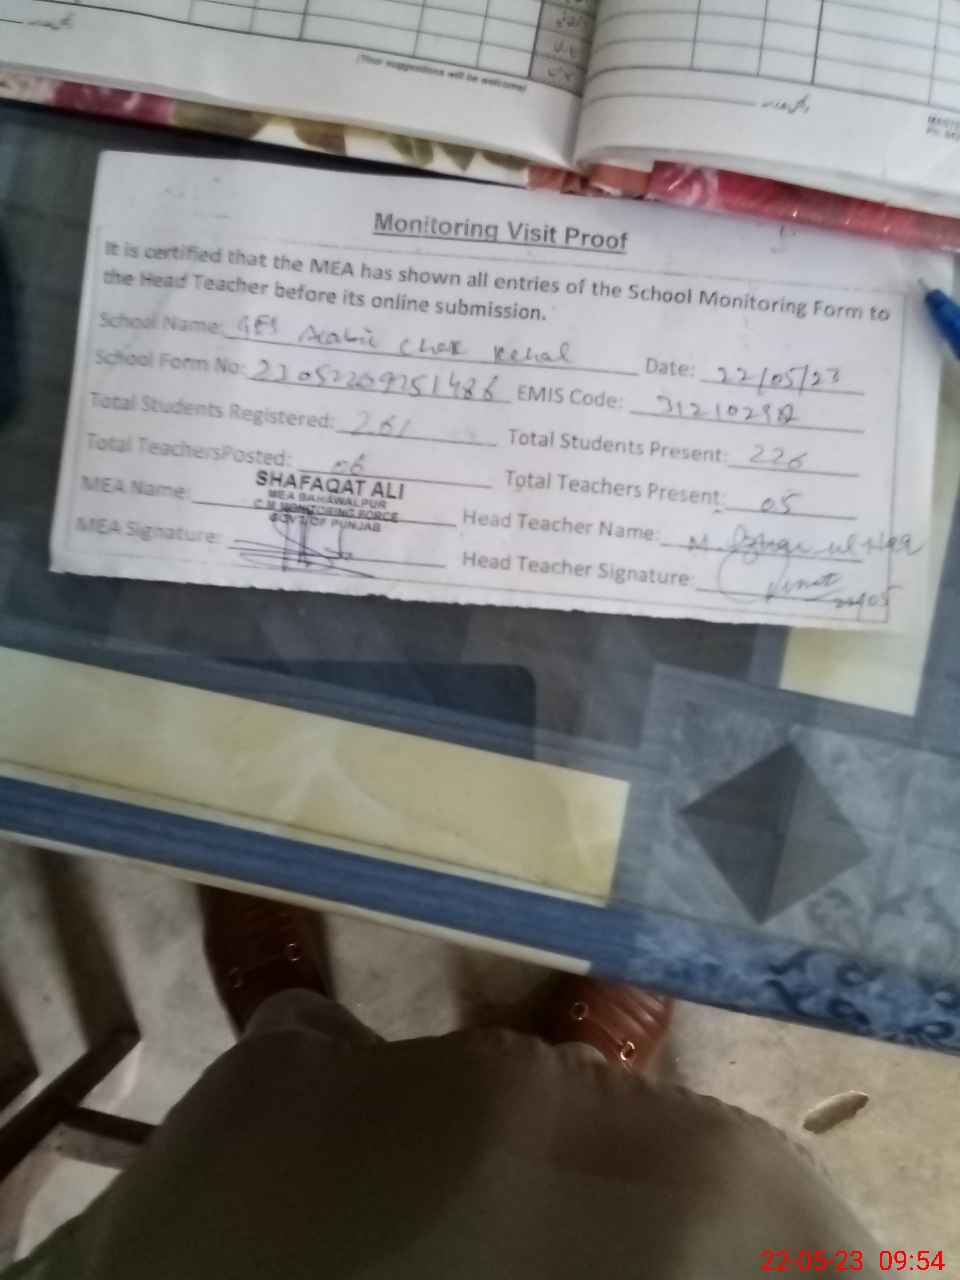 (Your suggestions will be welcome)
Monitoring Visit Proof
It is certified that the MEA has shown all entries of the School Monitoring Form to
the Head Teacher before its online submission.
School Name: GES Arabic Chak Kehal Date: 22/05/23
School Form No: 23052209251486 EMIS Code:
Total Students Registered: 261 Total Students Present: 226
Total TeachersPosted: 06 Total Teachers Present: 05
MEA Name: SHAFAQAT ALI
MEA BAHAWALPUR
C.M MONITORING FORCE
GOVT OF PUNJAB
Head Teacher Name: M
MEA Signature: Head Teacher Signature:
22/05
22-05-23 09:54